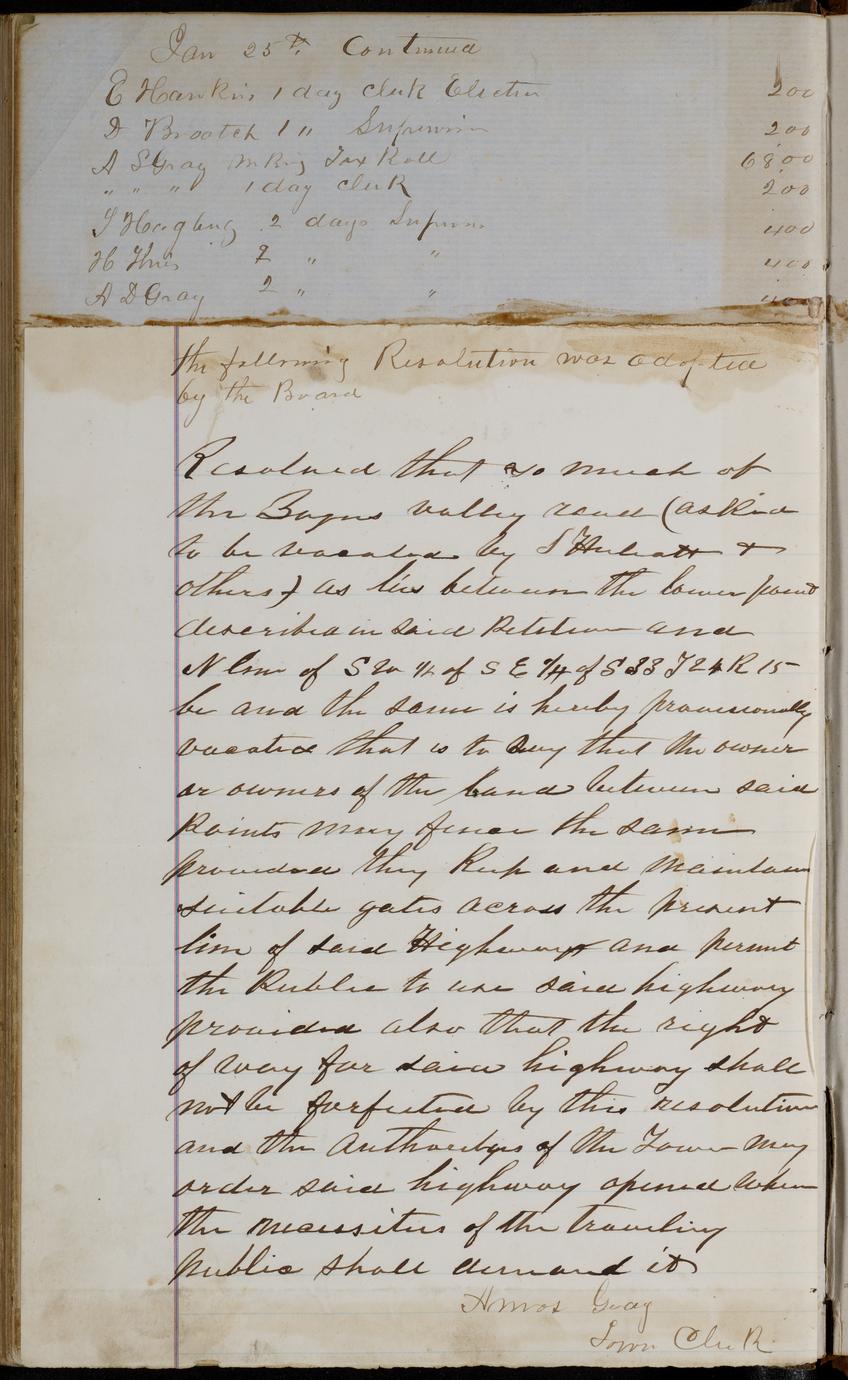 Jan 25th Continued
E Hawkins 1 day clerk Election 200
D Brootch 1 " Supervisor 200
A S Gray Making Tax Roll 6800
" " " 1 day clerk 200
S 2 days Supervis 400
H 2 " " 400
A D Gray 2 " " 400
the following Resolution was adopted
by the Board
Resolved that so much of
the Bogus valley road (asked
to be vacated by S &
others) as lies between the lower point
described in said Petition and
N line of S W 1/4 of S E 1/4 of S 33 T 24 R 15
be and the same is hereby provisionally
vacated that is to say that the owner
or owners of the land between said
Points may fence the same
provided they Keep and maintain
suitable gates across the present
line of said Highway and permit
the Public to use said highway
provided also that the right
of way for said highway shall
not be forfeited by this resolution
and the Authoritys of the Town may
order said highway opened when
the necessities of the traveling
public shall demand it
Amos Gray
Town Clerk